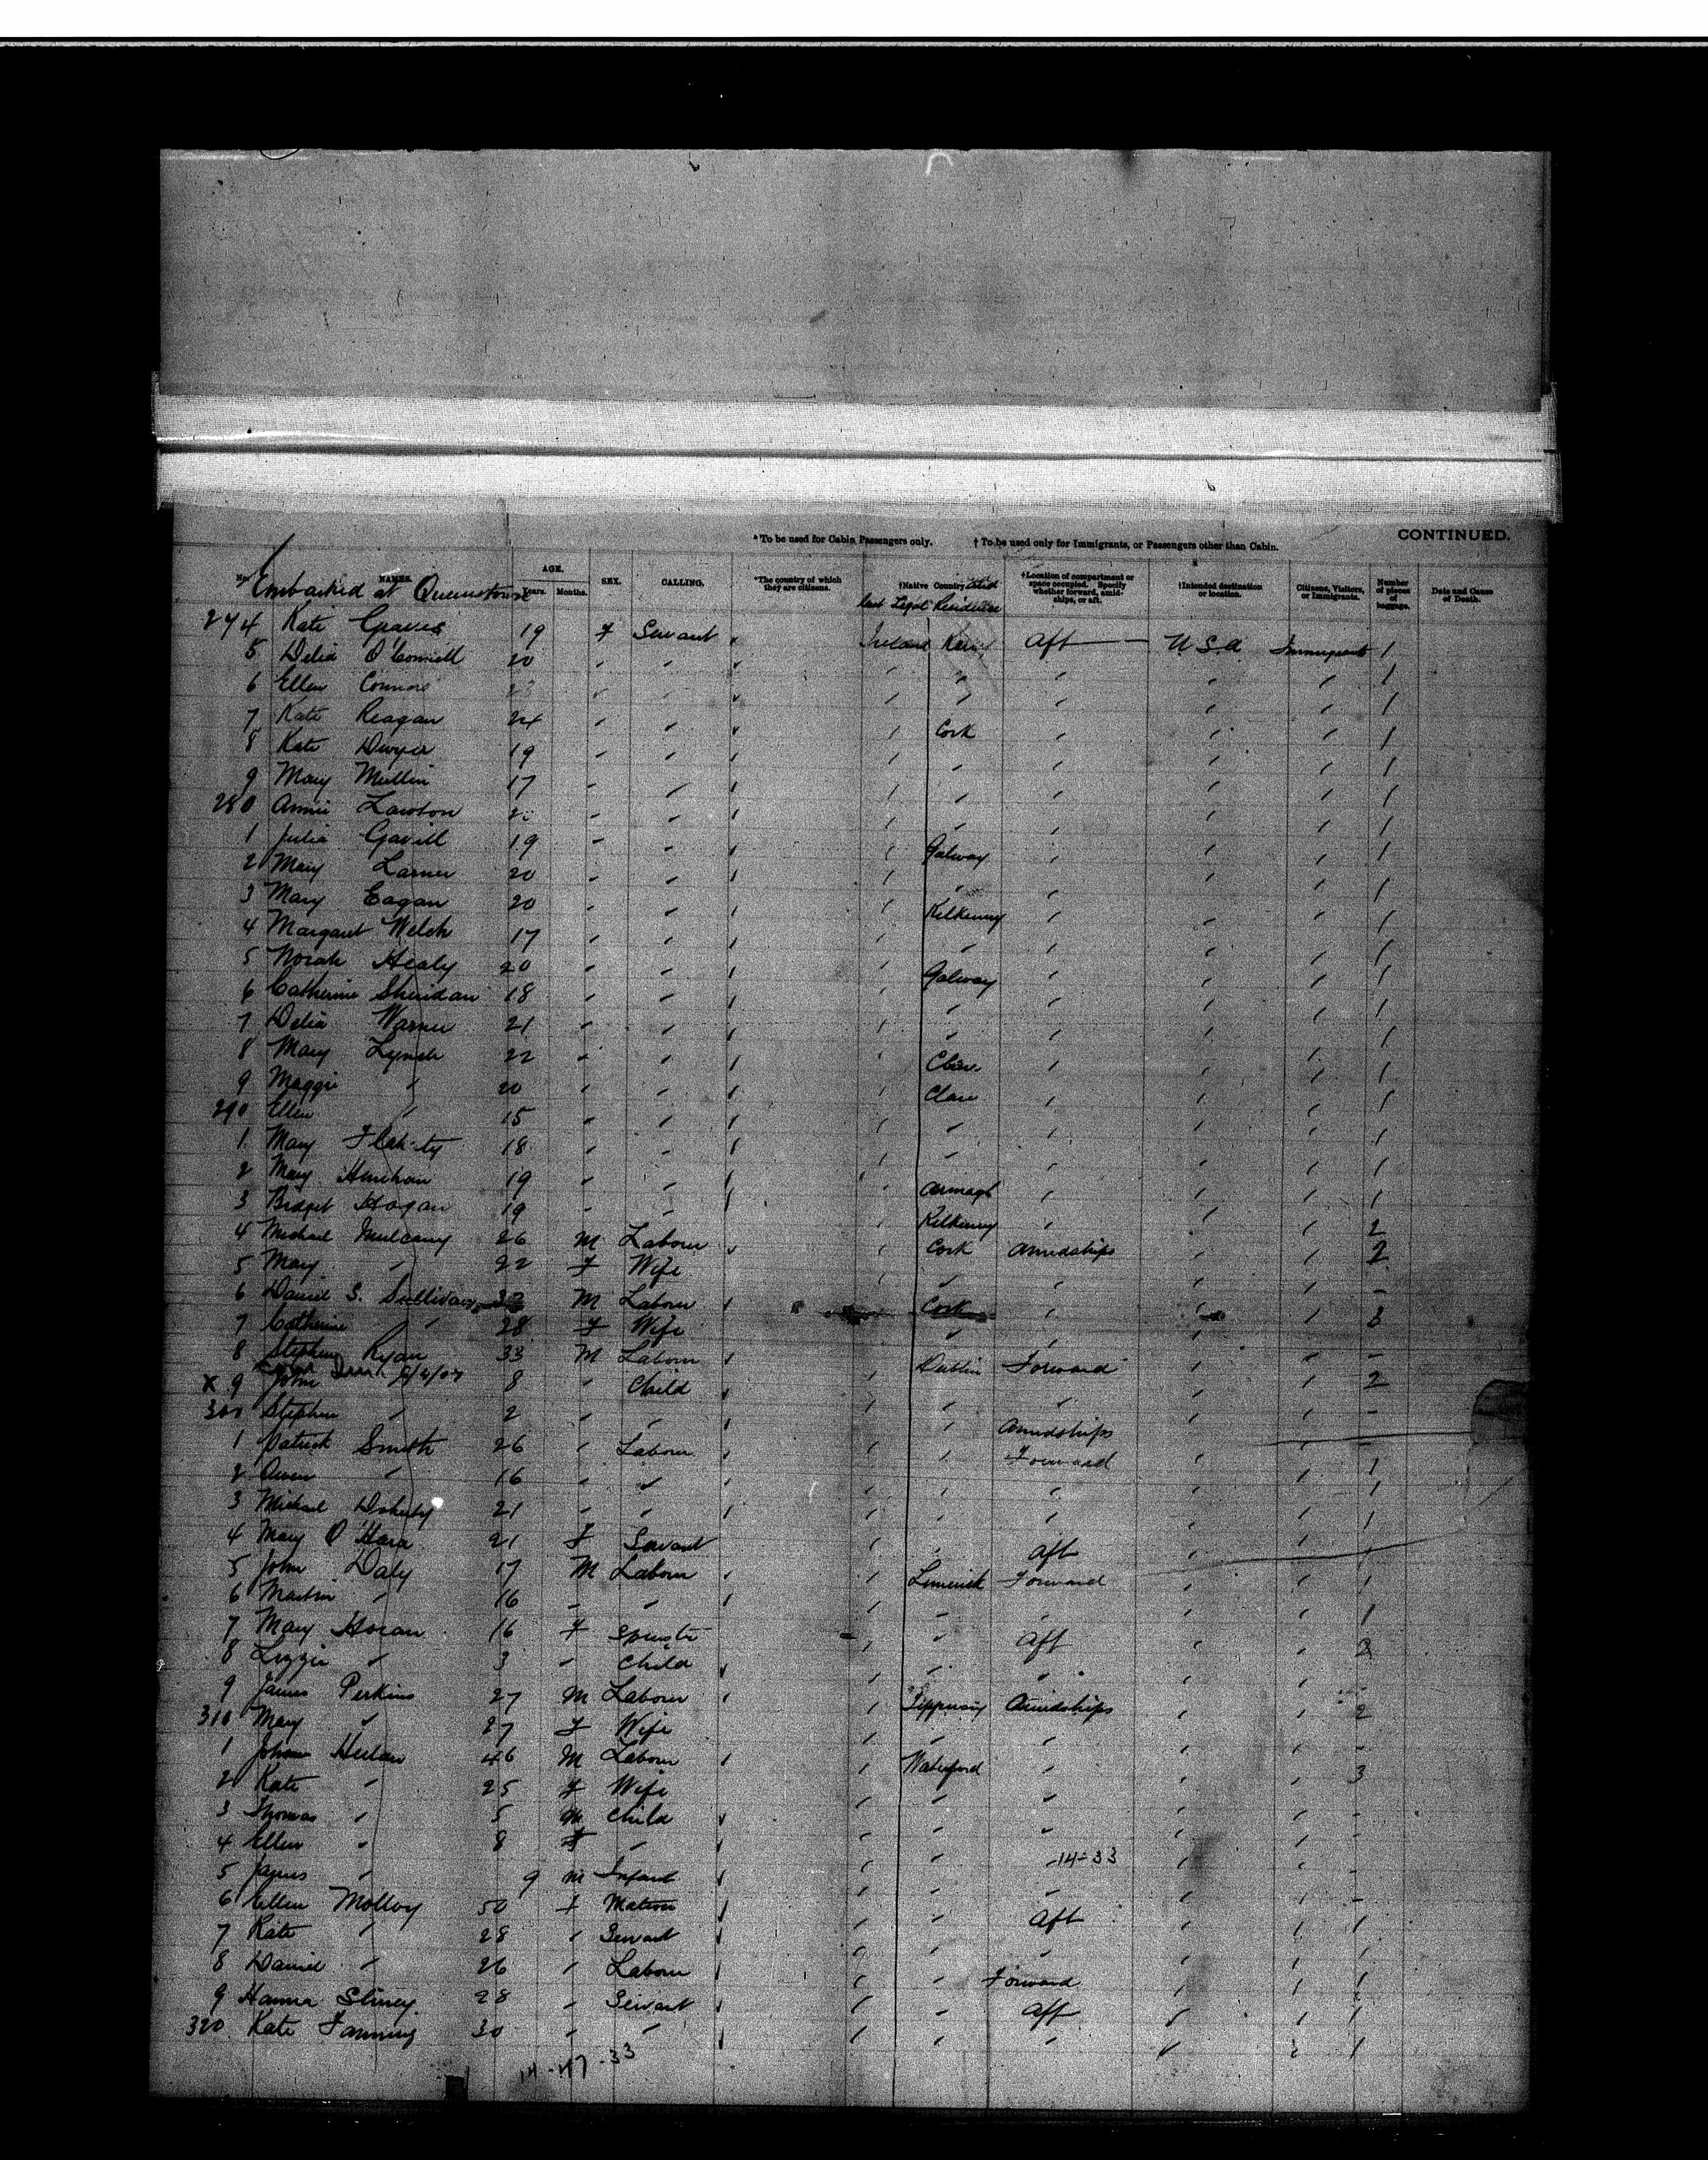 CONTINUED.
* To be used for Cabin Passengers only. † To be used only for Immigrants, or Passengers other than Cabin.
No. NAMES. AGE. Years. Months. SEX. CALLING. *The country of which they are citizens. †Native Country last Legal Residence †Location of compartment or space occupied. Specify whether forward, amidships, or aft. †Intended destination or location. Citizens, Visitors, or Immigrants. Number of pieces of baggage. Date and Cause of Death.
Embarked at Queenstown
274 Kate 19 F Servant Ireland Aft U.S.A. Immigrant 1
5 Delia O'Connell 20 " " " " " " " 1
6 Ellen Connors " " " " " " " 1
7 Kate Reagan 24 " " " Cork " " " 1
8 Kate Dwyer 19 " " " " " " " 1
9 Mary Mullin 17 " " " " " " " 1
280 Annie Lawton " " " " " " " 1
1 Julia 19 " " " Galway " " " 1
2 Mary 20 " " " " " " " 1
3 Mary Eagan 20 " " " Kilkenny " " " 1
4 Margaret Welch 17 " " " " " " " 1
5 Norah Healy 20 " " " Galway " " " 1
6 Catherine Sheridan 18 " " " " " " " 1
7 Delia 21 " " " " " " " 1
8 Mary Lynch 22 " " " Clare " " " 1
9 Maggie " 20 " " " Clare " " " 1
290 Ellen " 15 " " " " " " " 1
1 Mary 18 " " " " " " " 1
2 Mary 19 " " " Armagh " " " 1
3 Bridget Hogan 19 " " " Kilkenny " " " 2
4 Michael Mulcany 26 M Labour " Cork Amidships " " 2
5 Mary " 22 F Wife " " " " " -
6 Daniel S. Sullivan M Labour " Cork " " " 3
7 Catherine " 28 F Wife " " " " " -
8 Stephen Ryan 33 M Labour " Dublin Forward " " 2
X 9 John 8 " Child " " " " " -
300 Stephen " 2 " " " " Amidships " " -
1 Patrick Smith 26 " Labour " " Forward " " 1
2 Owen " 16 " " " " " " " 1
3 Michael Doherty 21 " " " " " " " 1
4 Mary O'Hara 21 F Servant " " Aft " " 1
5 John Daly 17 M Labour " Limerick Forward " " 1
6 Martin " 16 " " " " " " " 1
7 Mary Horan 16 F Spinster " " Aft " " 2
8 Lizzie " 3 " Child " " " " " -
9 James Perkins 27 M Labour " Tipperary Amidships " " 2
310 Mary " 27 F Wife " " " " " -
1 46 M Labour " Waterford " " " 3
2 Kate " 25 F Wife " " " " " -
3 Thomas " 5 M Child " " " " " -
4 Ellen " 8 F " " " 14-33 " " -
5 James " 9 M Infant " " " " " -
6 Ellen Molloy 50 F Matron " " Aft " " 1
7 Kate " 28 " Servant " " " " " 1
8 Daniel " 26 " Labour " " Forward " " 1
9 Hanna 28 " Servant " " Aft " " 1
320 Kate Fanning 30 " " " " " " " 1
14-47-33